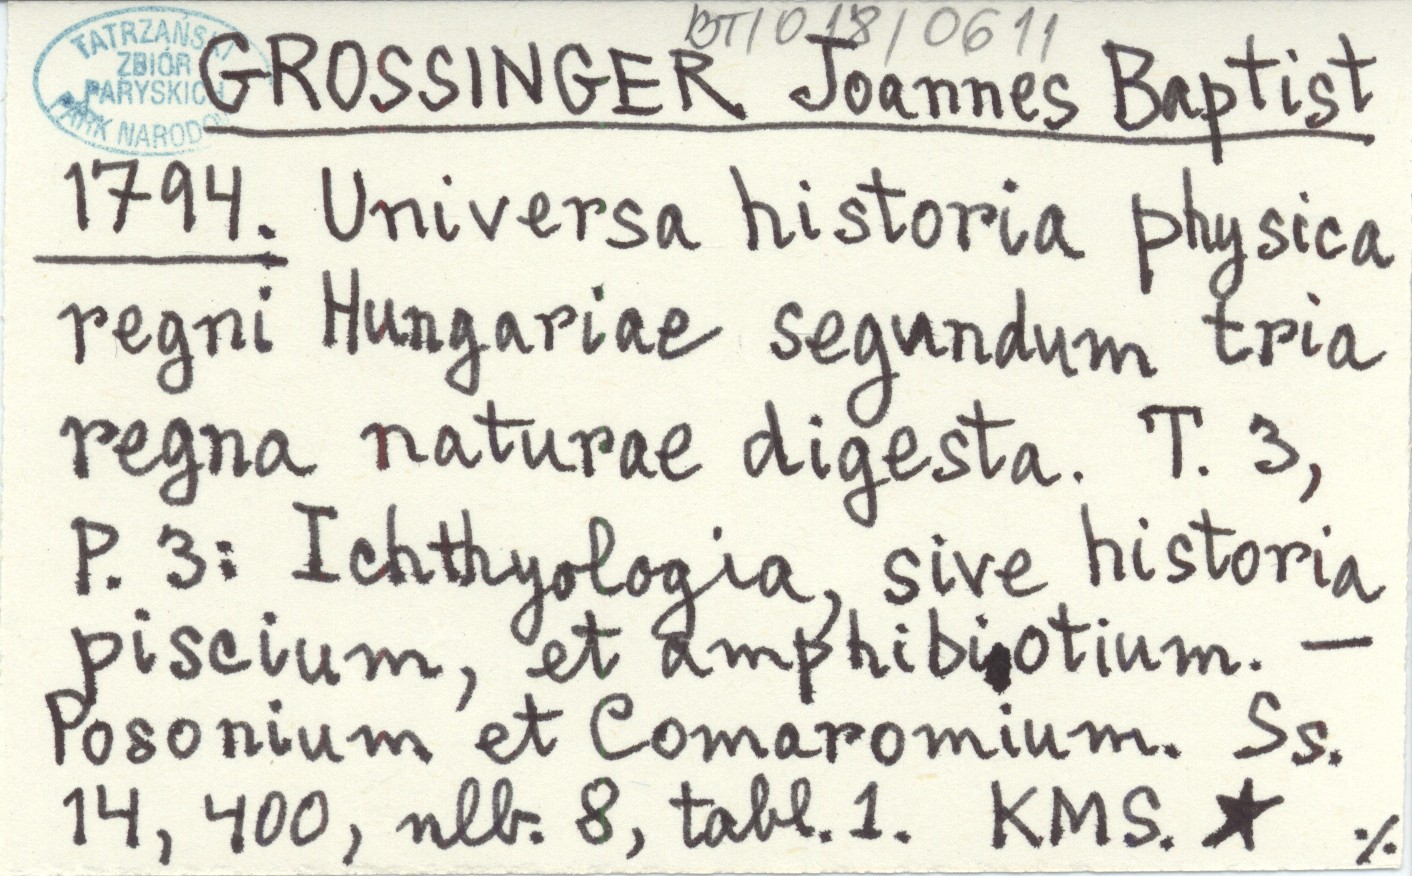 BT/018/0611
TATRZAŃSKI
ZBIÓR
PARYSKICH
PARK NARODO
GROSSINGER Joannes Baptist
1794. Universa historia physica
regni Hungariae segundum tria
regna naturae digesta. T. 3,
P. 3: Ichthyologia, sive historia
piscium, et amphibiotium. —
Posonium et Comaromium. Ss.
14, 400, nlb. 8, tabl. 1. KMS. ★ ·/.